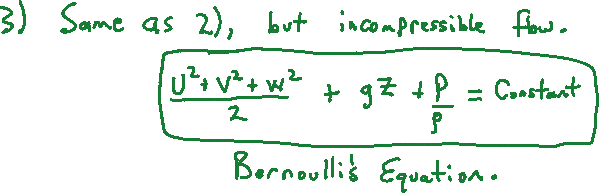 3) Same as 2), but incompressible flow.
(U² + V² + W²)/2 + gz + P/ρ = Constant
Bernoulli's Equation.